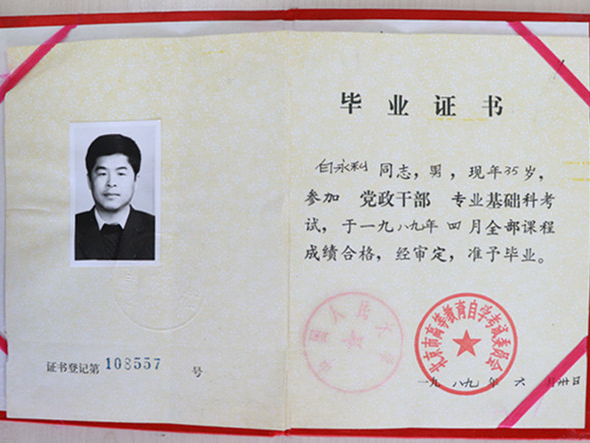 证书登记第 108557 号
毕业证书
白永利 同志，男，现年35岁，
参加 党政干部 专业基础科考
试，于一九八九年 四月全部课程
成绩合格，经审定，准予毕业。
中国人民大学
北京市高等教育自学考试委员会
一九八九年 六月卅日